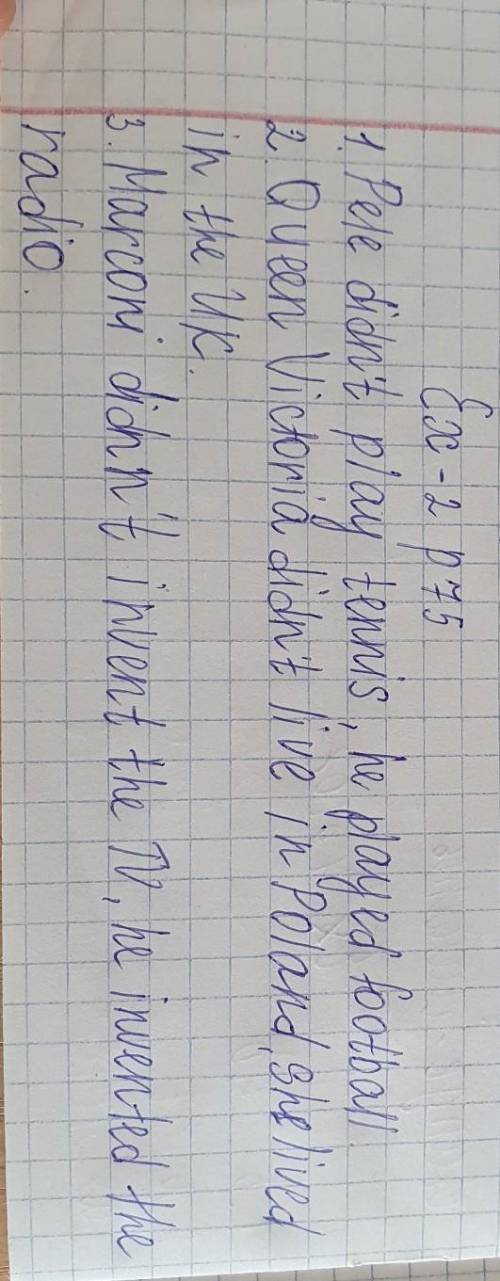 Ex-2 p75
1. Pele didn't play tennis, he played football.
2. Queen Victoria didn't live in Poland, she lived
in the UK.
3. Marconi didn't invent the TV, he invented the
radio.